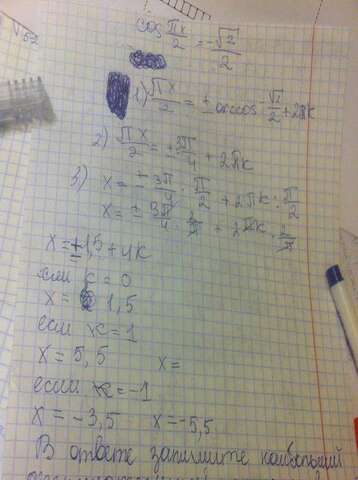 cos πx/2 = -√2/2
1) πx/2 = ± arccos -√2/2 + 2πk
2) πx/2 = ± 3π/4 + 2πk
3) x = ± 3π/4 : π/2 + 2πk : π/2
x = ± 3π/4 · 2/π + 2πk · 2/π
x = ±1,5 + 4k
если k = 0
x = 1,5
если k = 1
x = 5,5 x =
если k = -1
x = -3,5 x = -5,5
В ответе запишите наибольший